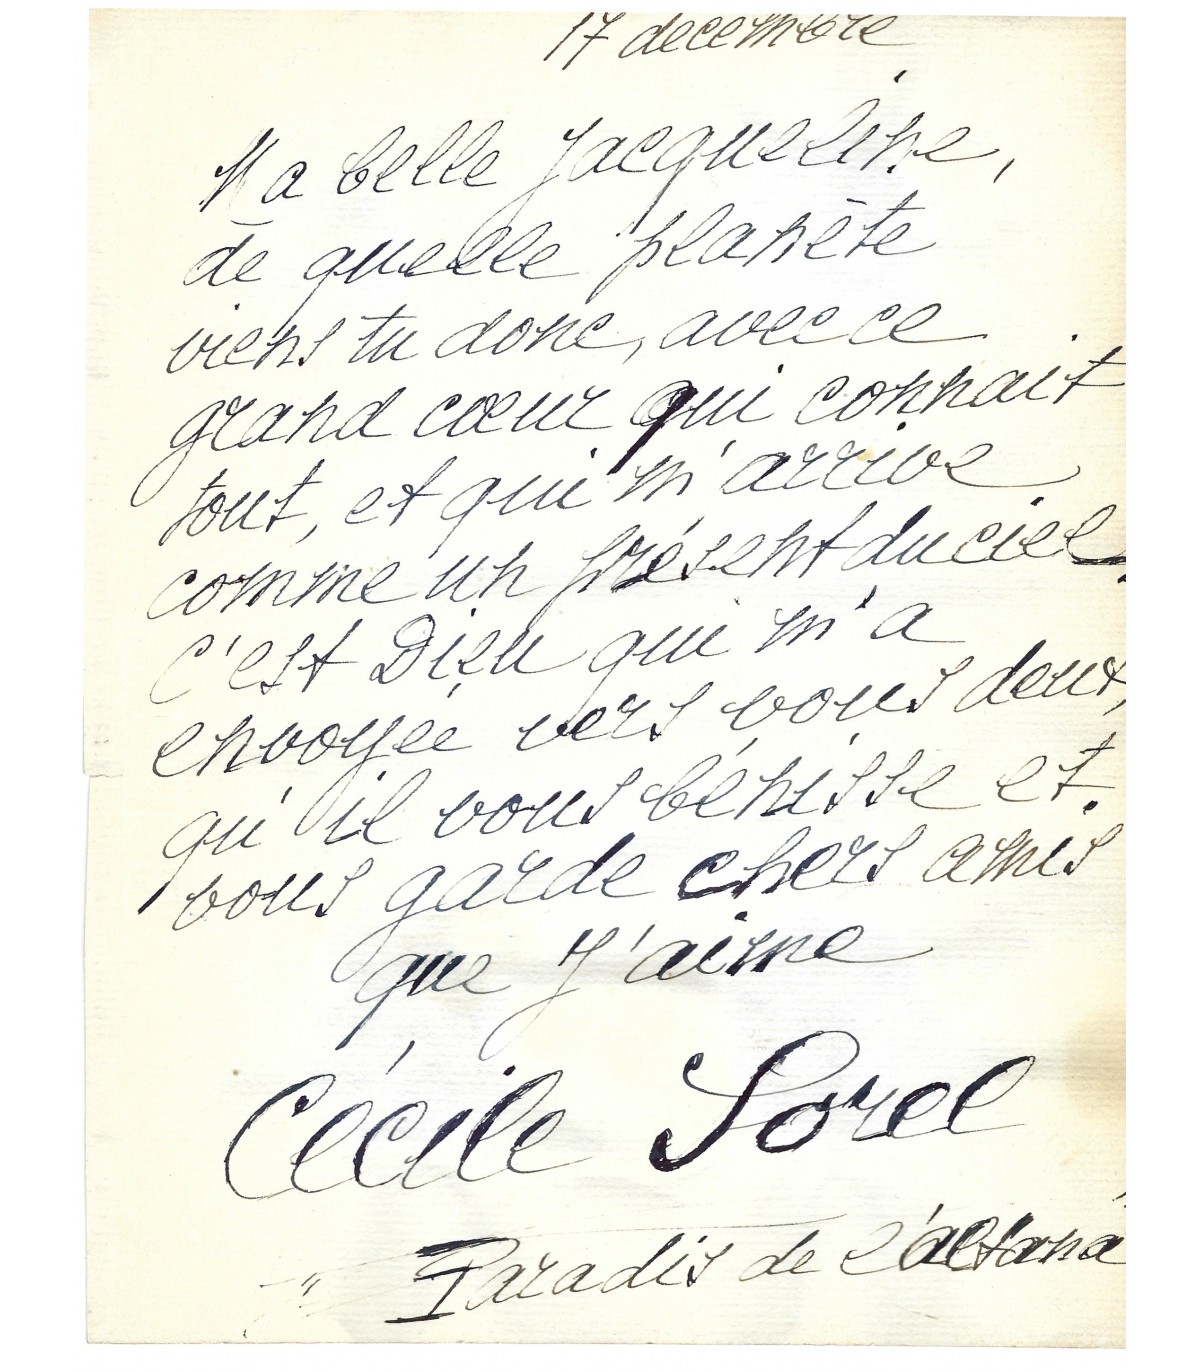 17 decembre
Ma belle Jacqueline,
de quelle planète
viens tu donc, avec ce
grand cœur qui connait
tout, et qui m'arrive
comme un présent du ciel.
C'est Dieu qui m'a
envoyée vers vous deux,
qu'il vous bénisse et
vous garde chers amis
que J'aime
Cécile Sorel
Paradis de l'altana